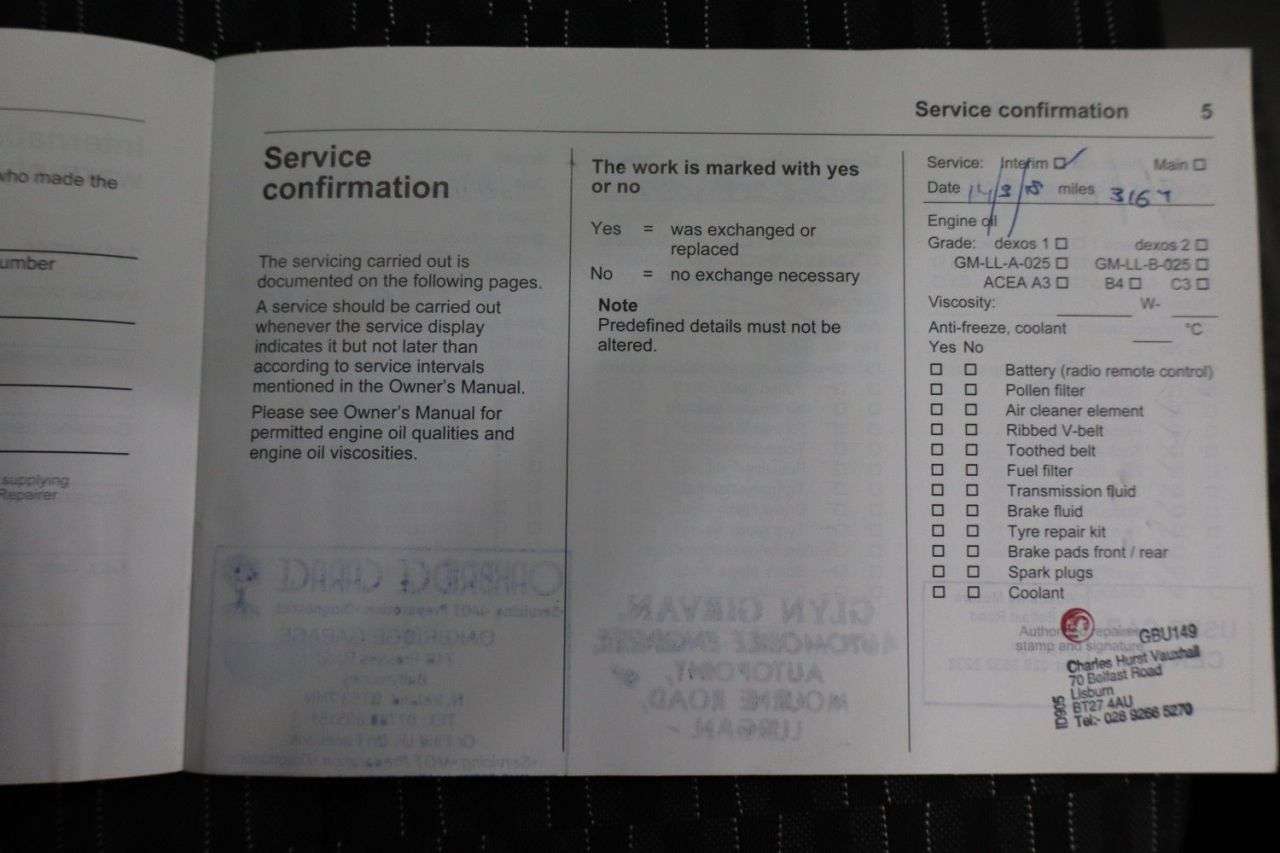 who made the
umber
supplying
Repairer
Service confirmation 5
Service
confirmation
The servicing carried out is
documented on the following pages.
A service should be carried out
whenever the service display
indicates it but not later than
according to service intervals
mentioned in the Owner's Manual.
Please see Owner's Manual for
permitted engine oil qualities and
engine oil viscosities.
The work is marked with yes
or no
Yes = was exchanged or
replaced
No = no exchange necessary
Note
Predefined details must not be
altered.
Service: Interim ☐ ✓ Main ☐
Date miles
Engine oil
Grade: dexos 1 ☐ dexos 2 ☐
GM-LL-A-025 ☐ GM-LL-B-025 ☐
ACEA A3 ☐ B4 ☐ C3 ☐
Viscosity: ______ W- ______
Anti-freeze, coolant ______ °C
Yes No
☐ ☐ Battery (radio remote control)
☐ ☐ Pollen filter
☐ ☐ Air cleaner element
☐ ☐ Ribbed V-belt
☐ ☐ Toothed belt
☐ ☐ Fuel filter
☐ ☐ Transmission fluid
☐ ☐ Brake fluid
☐ ☐ Tyre repair kit
☐ ☐ Brake pads front / rear
☐ ☐ Spark plugs
☐ ☐ Coolant
stamp and signature
GBU149
Charles Hurst Vauxhall
70 Belfast Road
Lisburn
BT27 4AU
Tel:- 028 9266 5270